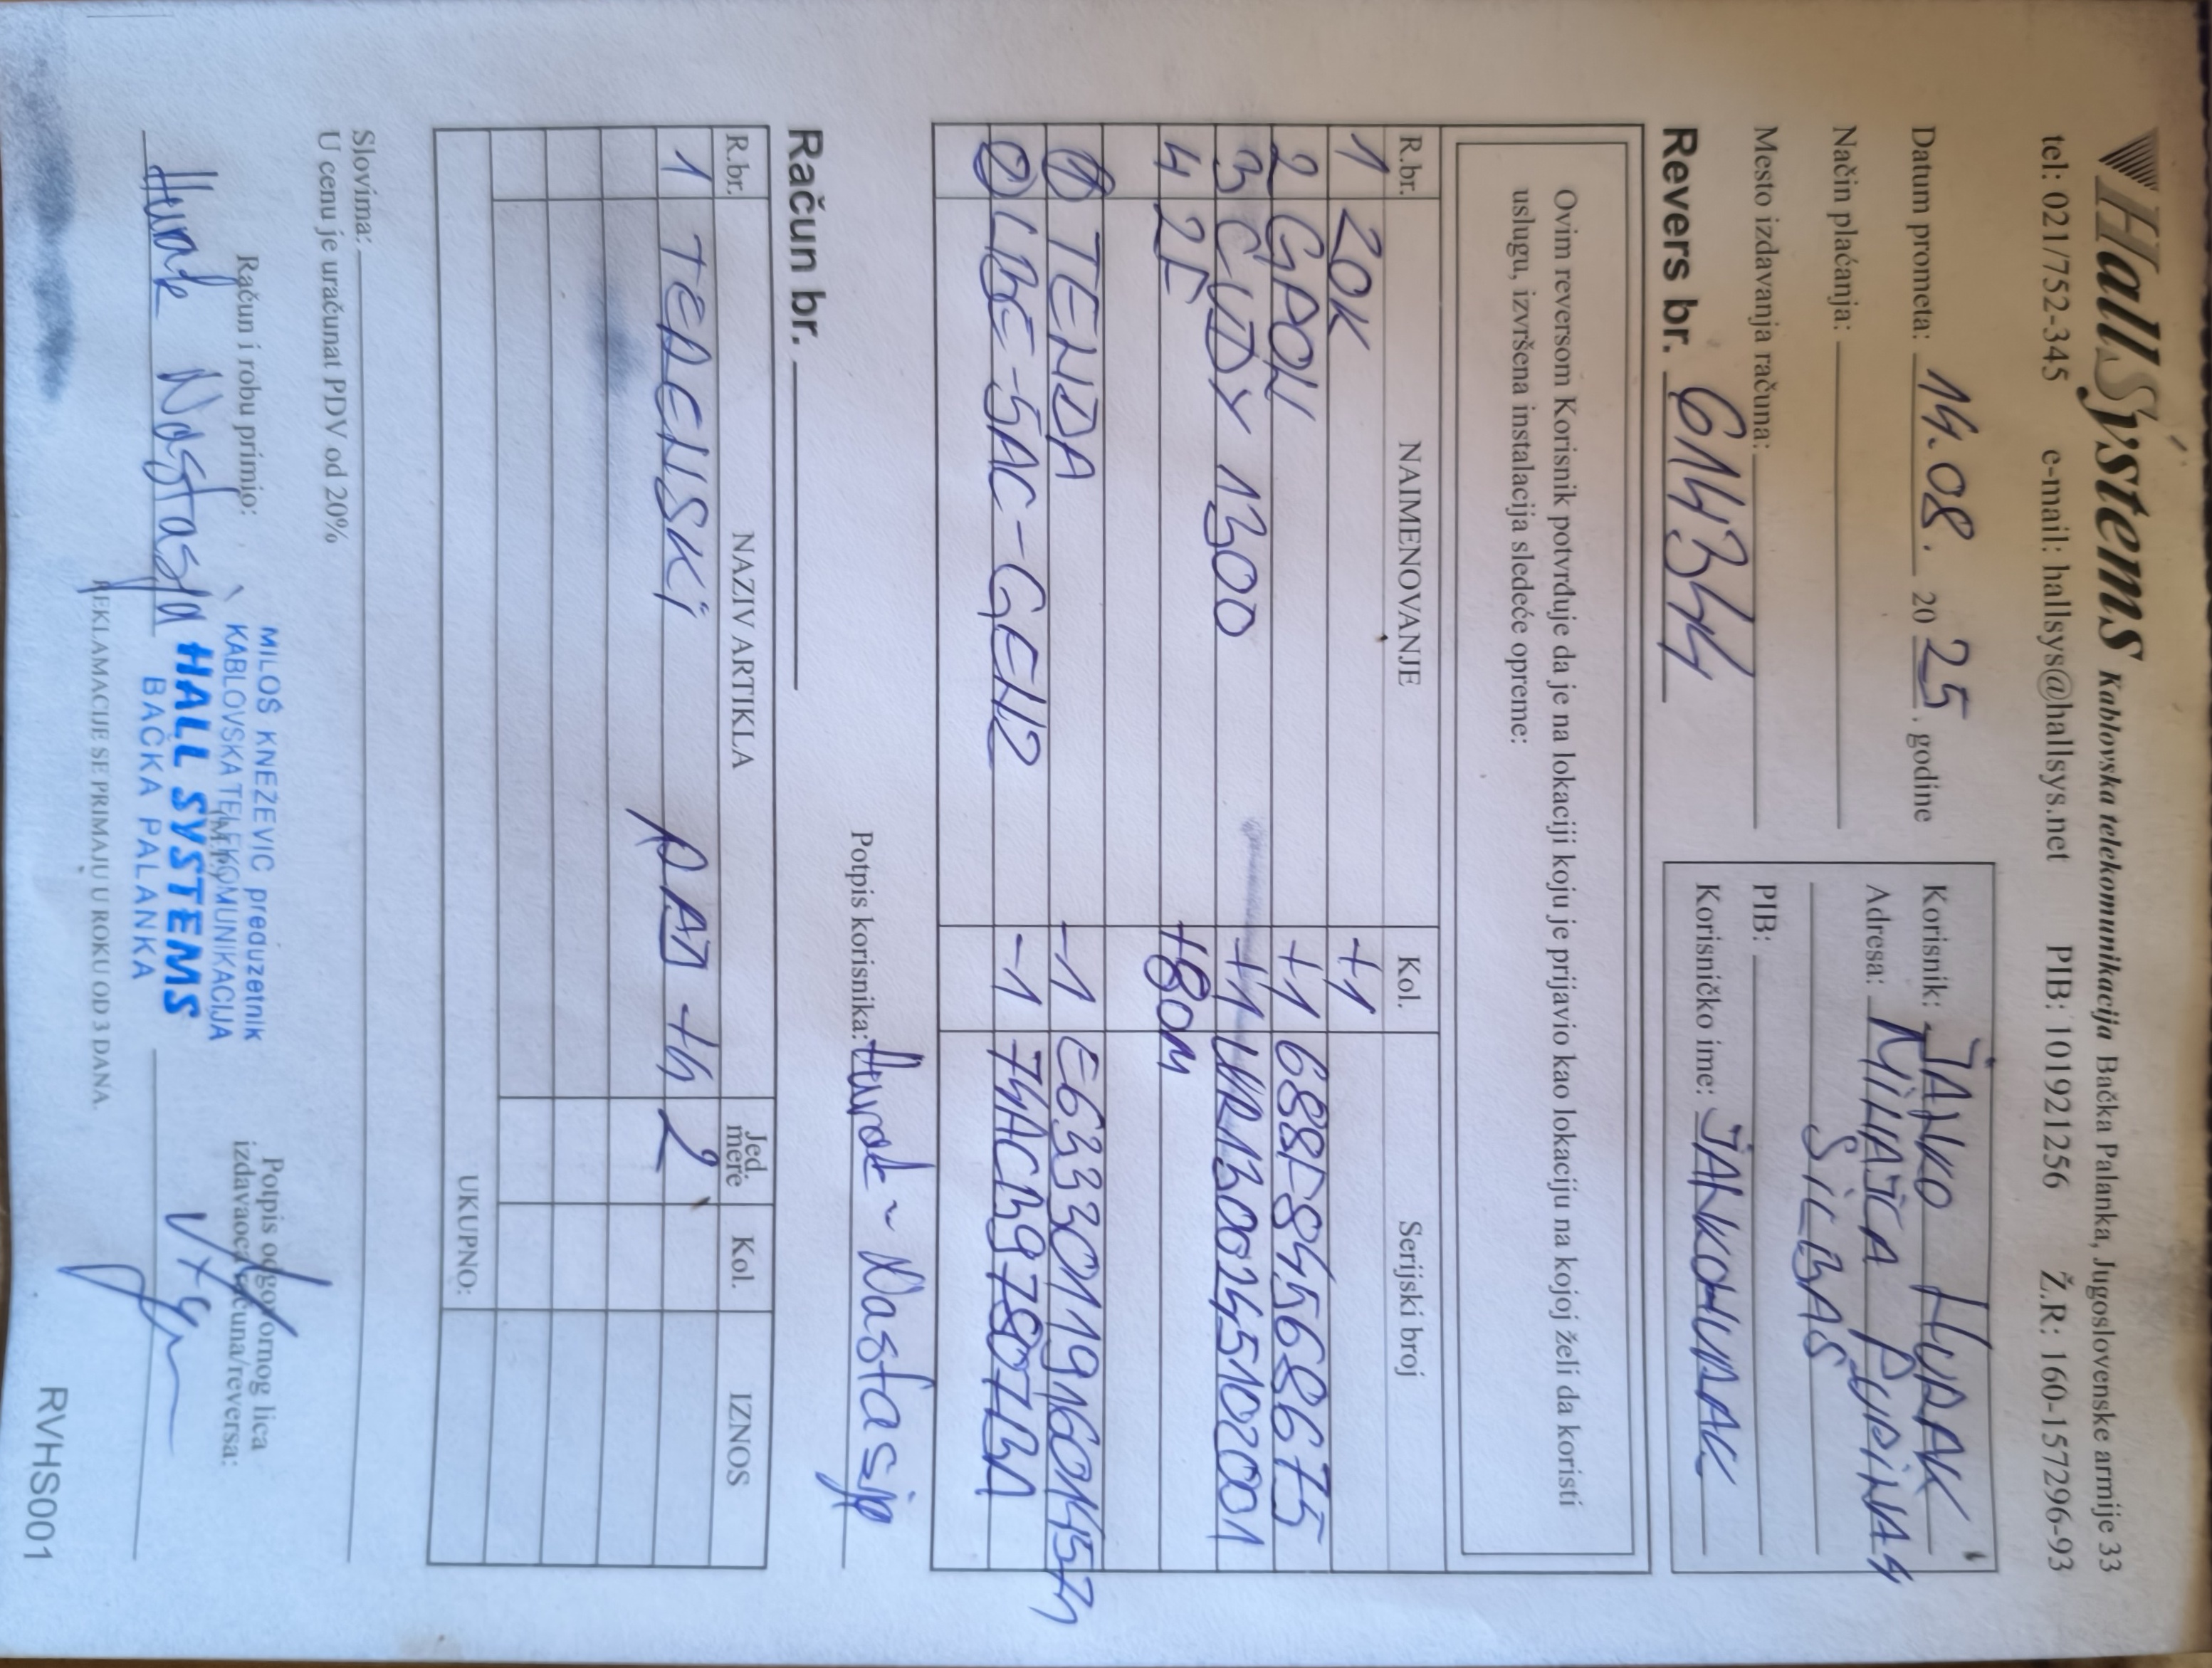 HallSystems Kablovska telekomunikacija Bačka Palanka, Jugoslovenske armije 33
tel: 021/752-345 e-mail: hallsys@hallsys.net PIB: 101921256 Ž.R: 160-157296-93
Datum prometa: 14.08. 2025. godine
Način plaćanja:
Mesto izdavanja računa:
Revers br. 614344
Korisnik: JANKO HURAK
Adresa: MILIAJCA PUPINA 4
SILBAŠ
PIB:
Korisničko ime: JANKOHURAK
Ovim reversom Korisnik potvrđuje da je na lokaciji koju je prijavio kao lokaciju na kojoj želi da koristi
uslugu, izvršena instalacija sledeće opreme:
R.br. NAIMENOVANJE Kol. Serijski broj
1 ZOK +1
2 GPON +1 688F845686F5
3 CUDY 1300 +1 WR1300245102001
4 2F +80M
1 TENDA -1 E6333011916014574
2 LBE-5AC-GEN2 -1 74AC397807BA
Potpis korisnika: Hurak Nastasja
Račun br.
R.br. NAZIV ARTIKLA Jed. mere Kol. IZNOS
1 TERENSKI RAD +h 2
UKUPNO:
Slovima:
U cenu je uračunat PDV od 20%
Račun i robu primio:
Hurak Nastasja
MILOŠ KNEŽEVIĆ preduzetnik
KABLOVSKA TELEKOMUNIKACIJA
HALL SYSTEMS
BAČKA PALANKA
(M.P.)
Potpis odgovornog lica
izdavaoca računa/reversa:
REKLAMACIJE SE PRIMAJU U ROKU OD 3 DANA.
RVHS001